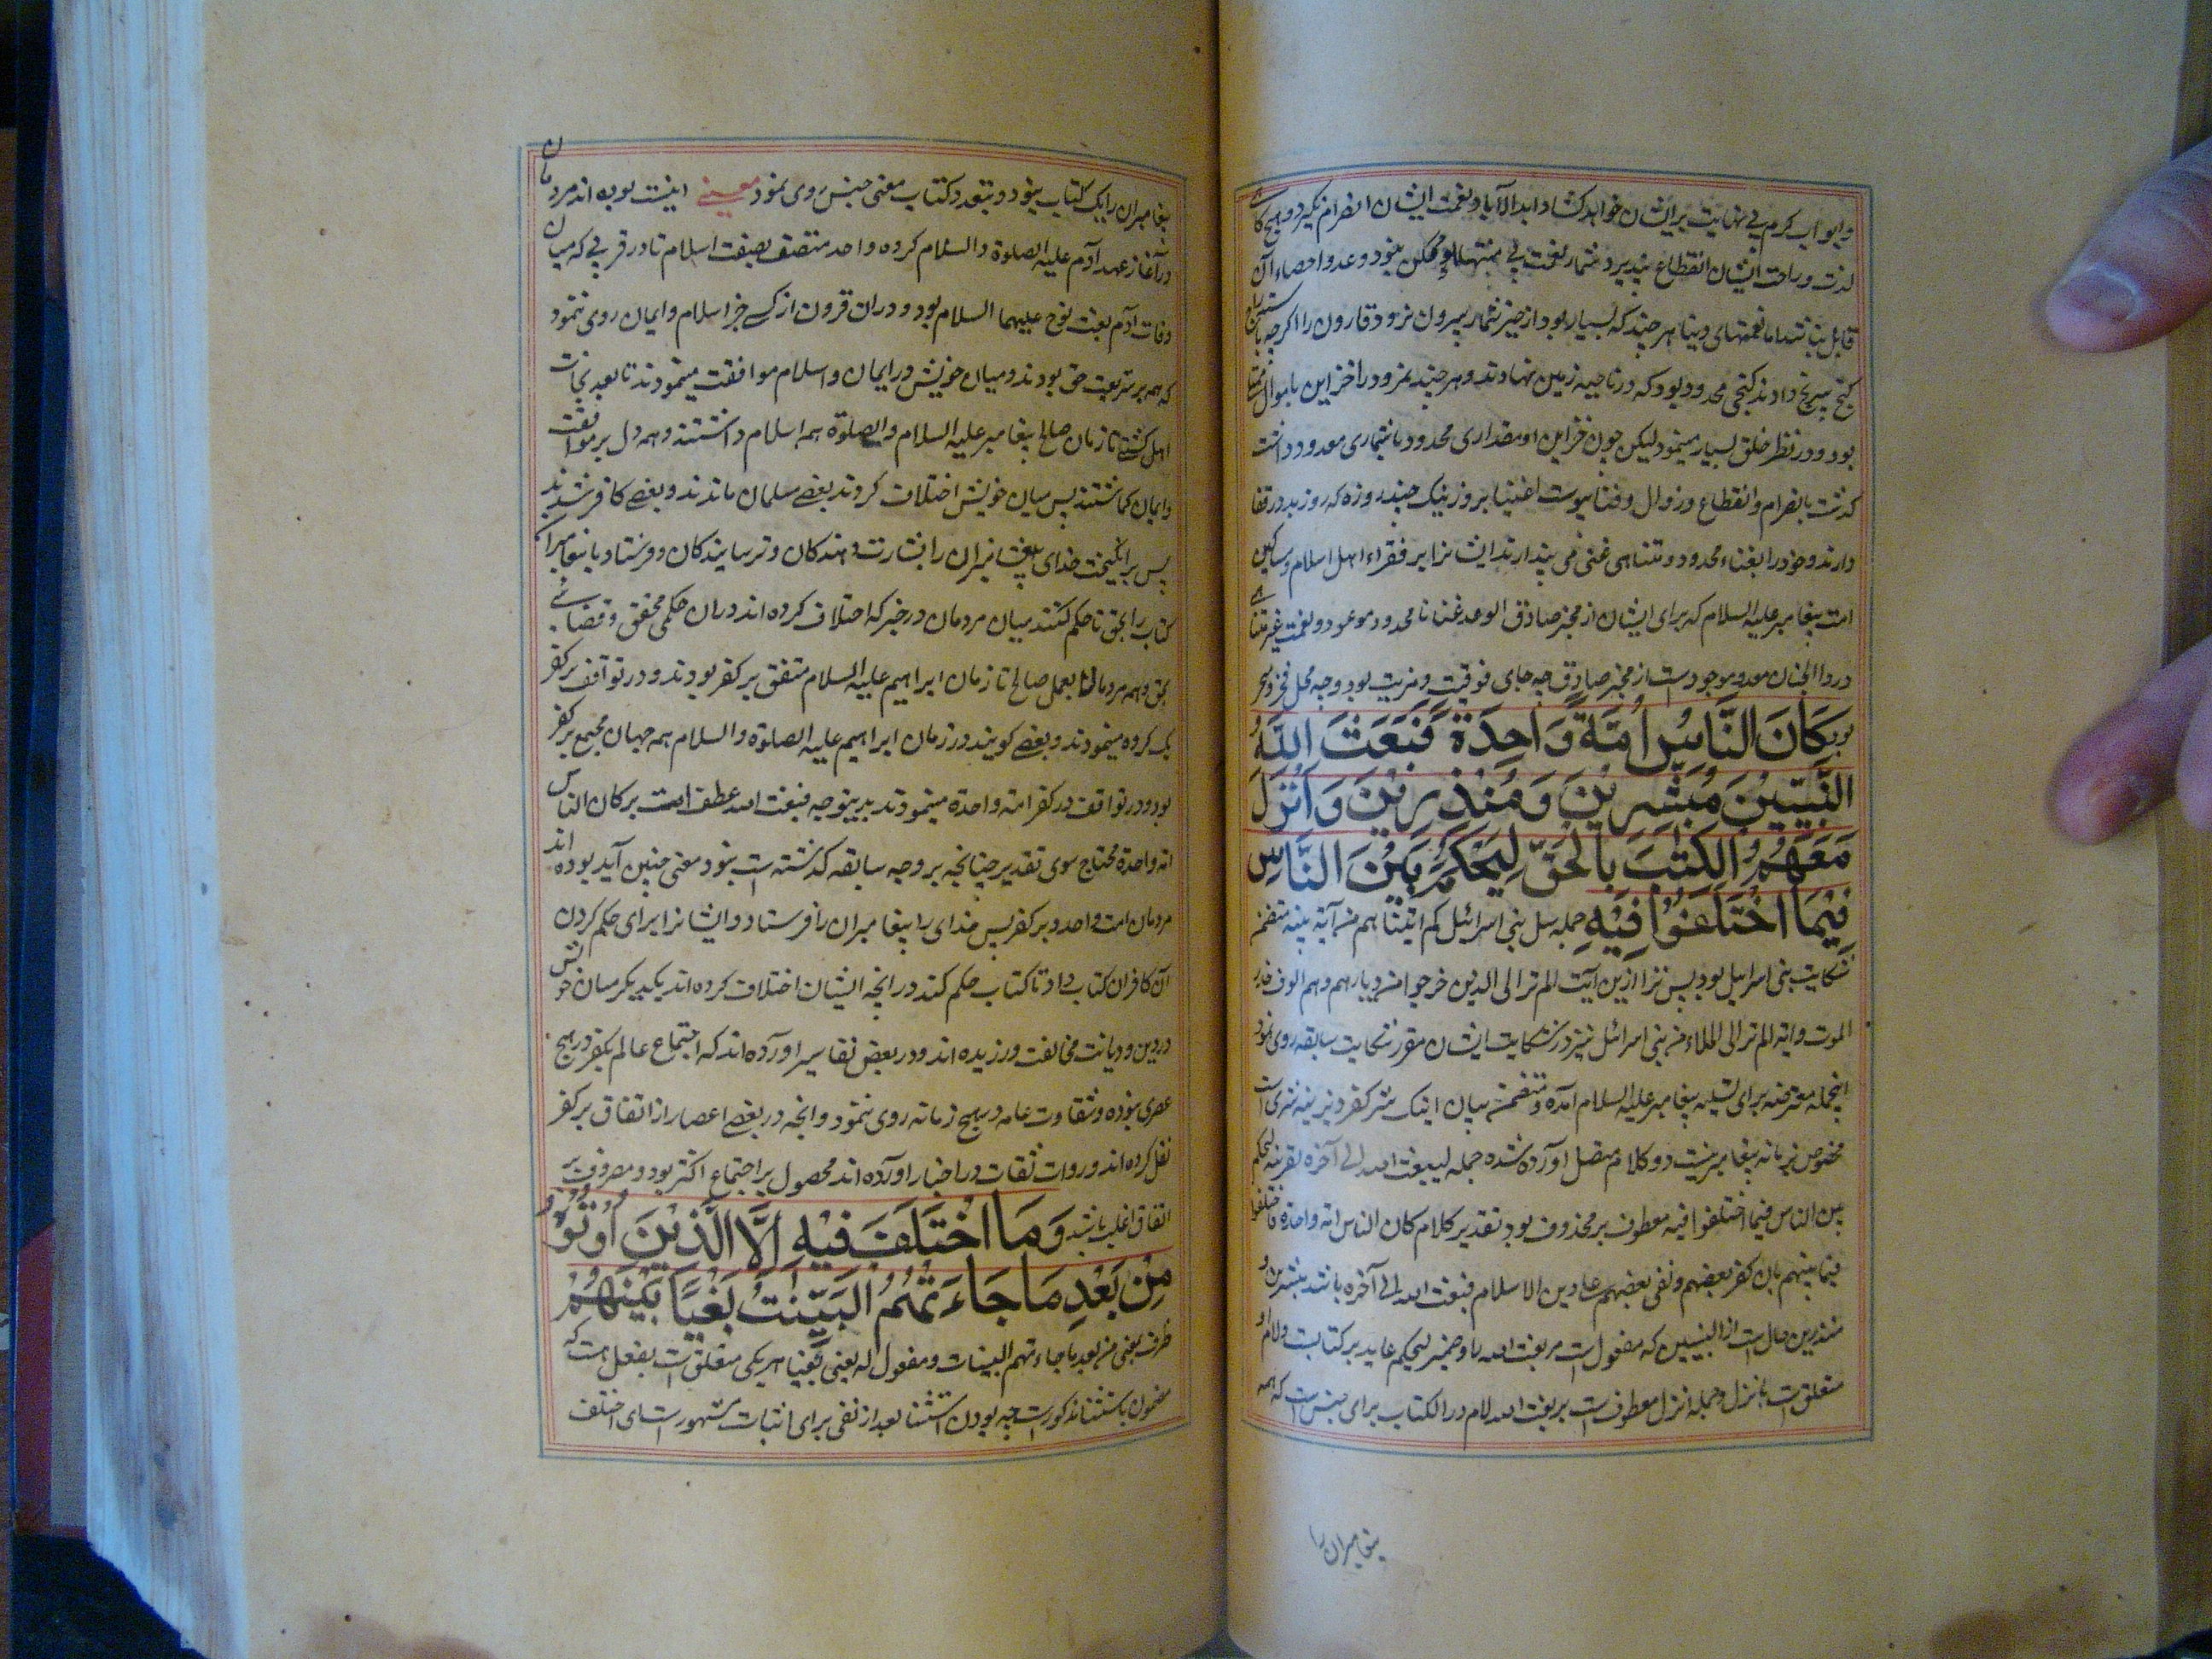 و ابواب کرم بی نهایت بر ایشان خواهد کشاد و ابد الآباد نعمت ایشان انصرام نکیرد و هیچ کاهی
لذت و راحت ایشان انقطاع نپذیرد شمار نعمت بی منتها ممکن نبود و عد و احصاء آن
قابل نباشد اما نعمتهای دنیا هر چند که بسیار بود از حیز شمار بیرون نرود قارون را اکرچه
کنج بیرنج دادند کنجی محدود بود که در ناحیه زمین نهادند و هر چند
بود و در نظر خلق بسیار مینمود لیکن چون خزاین او مقداری محدود باشماری معدود داشت
کذشت بانصرام و انقطاع و زوال و فنا پیوست اغنیا بروز نیک چند روزه که روز بد در قفا
دارند و خود را بغناء محدود و متناهی غنی می پندارند ایشانرا بر فقراء اهل اسلام و مساکین
امت پیغامبر علیه السلام که برای ایشان از مخبر صادق الوعد غنا نامحدود موعود و نعمت غیر متناهی
در دار الجنان معد و موجود است از مخبر صادق چه جای فوقیت و مزیت بود و چه محل فخر
بود كَانَ النَّاسُ أُمَّةً وَاحِدَةً فَبَعَثَ اللَّهُ
النَّبِيِّينَ مُبَشِّرِينَ وَمُنْذِرِينَ وَأَنْزَلَ
مَعَهُمُ الْكِتٰبَ بِالْحَقِّ لِيَحْكُمَ بَيْنَ النَّاسِ
فِيمَا اخْتَلَفُوا فِيهِ جمله سل بنی اسرائیل کم اتینا هم من آیة بینة متضمن
شکایت بنی اسرائیل بود پس ازین آیت الم تر الی الذین خرجوا من دیارهم و هم الوف حذر
الموت و ایه الم تر الی الملاء من بنی اسرائیل نیز در شکایت ایشان مقرر شکایت سابقه روی نمود
اینجمله معترضه برای تسلیه پیغامبر علیه السلام آمده و متضمن بیان اینک
مخصوص بزمانه پیغامبر نیست دو کلام متصل آورده شده جمله لیبعث الله الی آخره بقرینه لیحکم
بین الناس فیما اختلفوا فیه معطوف بر محذوف بود تقدیر کلام کان الناس امة واحدة فاختلفوا
فیما بینهم بان کفر بعضهم و نفی بعضهم علی دین الاسلام فبعث الله الی آخره باشد مبشرین و
منذرین حال است از النبیین که مفعول است مر بعث الله را و ضمیر لیحکم عاید بر کتابست و لام او
متعلق است بانزل و جمله انزل معطوف است بر بعث الله لام در الکتاب برای جنس است که همه
پیغامبران را
پیغامبران را یک کتاب نبود و بتعدد کتاب معنی جنس روی نمود معنی اینست بوده اند مردمان
در آغاز عهد آدم علیه الصلوة والسلام کروه واحد متصف بصفت اسلام تا در قرنی که میان
وفات آدم بعث نوح علیهما السلام بود و دران قرون از کسی جز اسلام و ایمان روی ننمود
که همه بر شریعت حق بودند و میان خویش در ایمان و اسلام موافقت مینمودند تا بعد نجات
اهل کشتی تا زمان صالح پیغامبر علیه السلام والصلوة همه اسلام داشتند و همه دل بر موافقت
و ایمان کماشتند پس میان خویش اختلاف کردند بعضی مسلمان ماندند و بعضی کافر شدند
پس برانکیخت خدای پیغامبران را بشارت دهندکان و ترسانیندکان و فرستاد با پیغامبران
کتاب را بحق تا حکم کنند میان مردمان در چیز که اختلاف کرده اند دران حکمی محقق و قضائی
بحق و همه مردمان بعمل صالح تا زمان ابراهیم علیه السلام متفق بر کفر بودند و در توافق بر کفر
یک کروه مینمودند و بعضی کویند در زمان ابراهیم علیه الصلوة والسلام همه جهان مجمع بر کفر
بود و در توافق در کفر امة واحدة مینمودند بدینوجه فبعث الله عطف است بر کان الناس
امة واحدة محتاج سوی تقدیر چنانچه بر وجه سابقه کذشته است نبود معنی چنین آید بوده اند
مردمان امت واحد و بر کفر پس خدای پیغامبران را فرستاد و ایشانرا برای حکم کردن
آن کافران کتاب داد تا کتاب حکم کند در انچه ایشان اختلاف کرده اند یکدیکر میان خویش
در دین و دیانت مخالفت ورزیده اند و در بعض تفاسیر آورده اند که اجتماع عالم بکفر در هیچ
عصری نبوده و شقاوت عامه در هیچ زمانه روی ننمود و انچه در بعضی اعصار از اتفاق بر کفر
نقل کرده اند و روات ثقات در اخبار آورده اند محمول بر اجتماع اکثر بود و مصروف بر
اتفاق اغلب باشد وَمَا اخْتَلَفَ فِيهِ إِلَّا الَّذِينَ أُوتُوهُ
مِنْ بَعْدِ مَا جَاءَتْهُمُ الْبَيِّنٰتُ بَغْيًا بَيْنَهُمْ
ظرف یعنی من بعد ما جاءتهم البینات و مفعول له یعنی بغیا هر یکی متعلق است بفعل است که
مضمون باستثنا مذکور است چه بودن استثنا بعد از نفی برای اثبات مشهور است ای اختلف